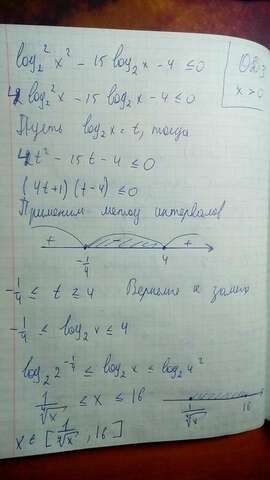 log₂² x² - 15 log₂ x - 4 ≤ 0
ОДЗ
x > 0
4 log₂² x - 15 log₂ x - 4 ≤ 0
Пусть log₂ x = t, тогда
4t² - 15t - 4 ≤ 0
(4t+1)(t-4) ≤ 0
Применим метод интервалов
+ - +
-1/4 4
-1/4 ≤ t ≥ 4 Вернемся к замене
-1/4 ≤ log₂ x ≤ 4
log₂ 2^(-1/4) ≤ log₂ x ≤ log₂ 4²
1/∜x ≤ x ≤ 16
1/∜x 16
x ∈ [1/∜x, 16]